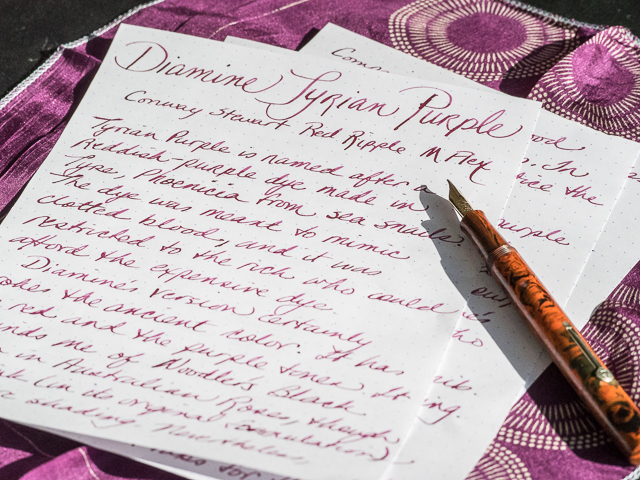 Diamine Tyrian Purple
Conway Stewart Red Ripple M Flex
Tyrian Purple is named after a
Reddish-purple dye made in
Tyre, Phoenicia from sea snails.
The dye was meant to mimic
clotted blood, and it was
restricted to the rich who could
afford the expensive dye.
Diamine's version certainly
the ancient color. It has
red and the purple tones. It
me of Noodler's Black
in Australian Roses, though
(in its original
shading. Nevertheless,
ood,
In
the
purple